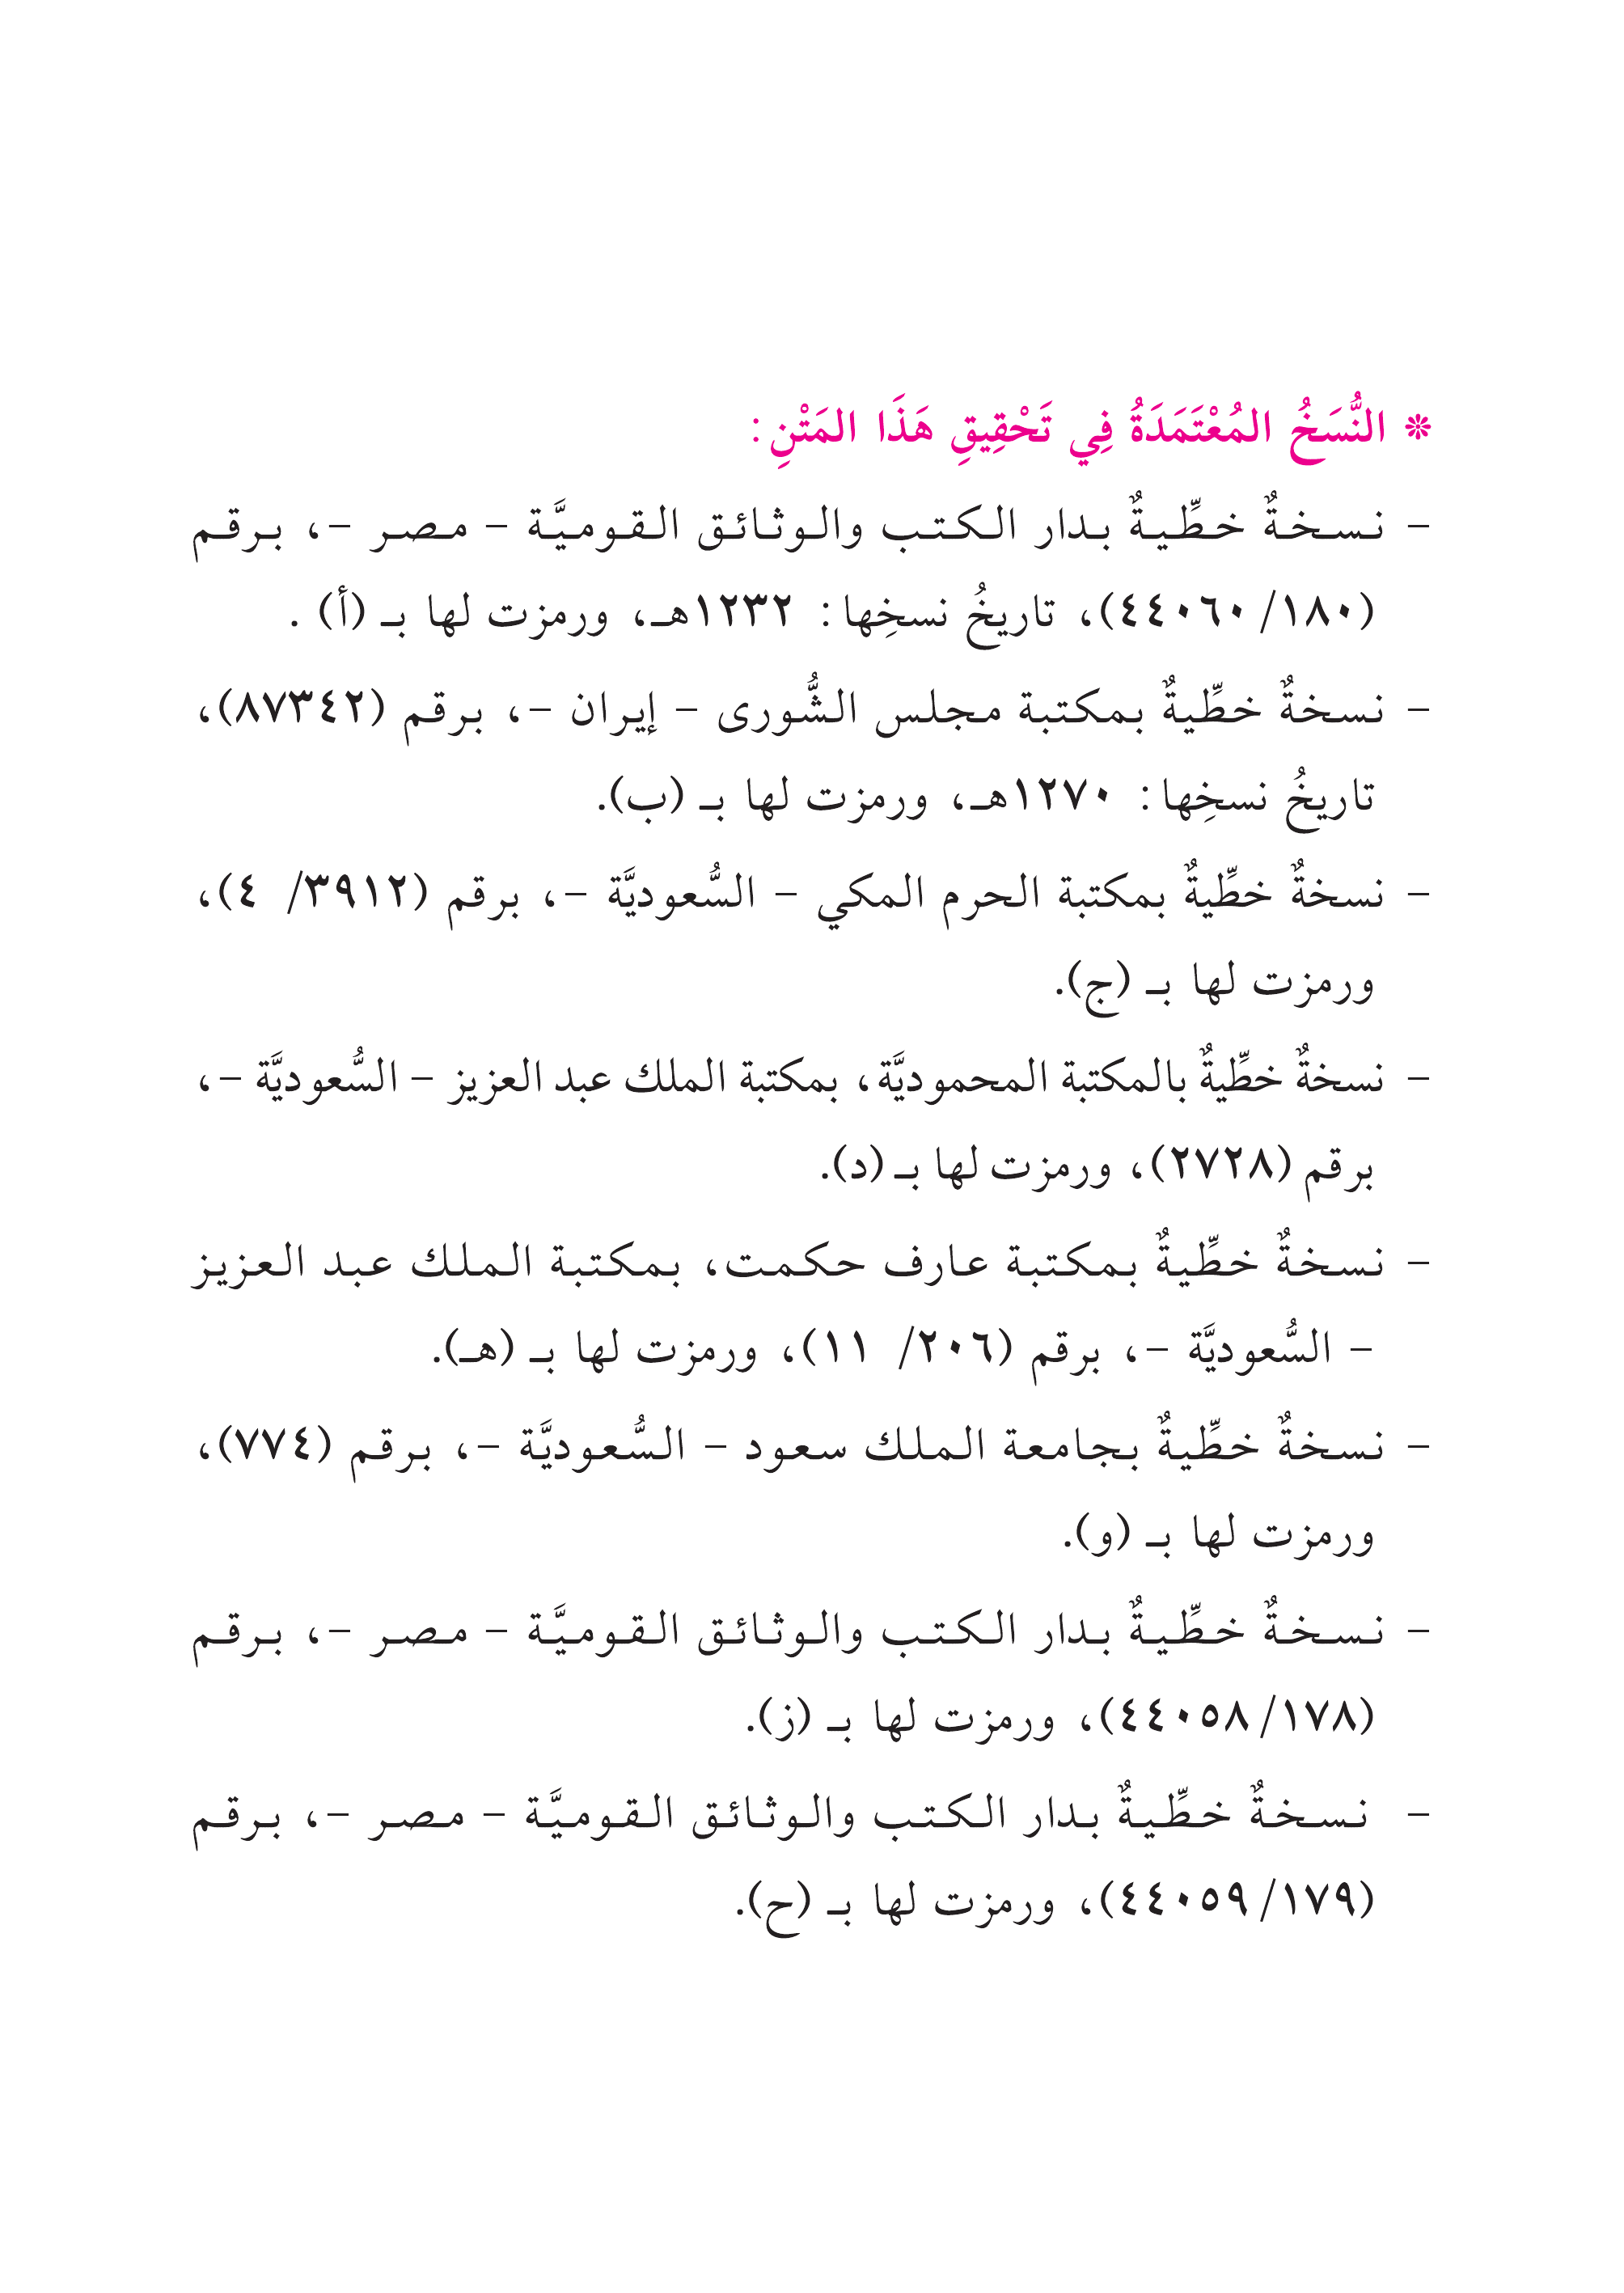 ❊ النُّسَخُ المُعْتَمَدَةُ فِي تَحْقِيقِ هَذَا المَتْنِ:
- نسخةٌ خطِّيةٌ بدار الكتب والوثائق القوميَّة - مصر -، برقم
(١٨٠/ ٤٤٠٦٠)، تاريخُ نسخِها: ١٢٣٢هـ، ورمزت لها بـ (أ) .
- نسخةٌ خطِّيةٌ بمكتبة مجلس الشُّورى - إيران -، برقم (٨٧٣٤٢)،
تاريخُ نسخِها: ١٢٧٠هـ، ورمزت لها بـ (ب).
- نسخةٌ خطِّيةٌ بمكتبة الحرم المكي - السُّعوديَّة -، برقم (٣٩١٢/ ٤)،
ورمزت لها بـ (ج).
- نسخةٌ خطِّيةٌ بالمكتبة المحموديَّة، بمكتبة الملك عبد العزيز - السُّعوديَّة -،
برقم (٢٧٢٨)، ورمزت لها بـ (د).
- نسخةٌ خطِّيةٌ بمكتبة عارف حكمت، بمكتبة الملك عبد العزيز
- السُّعوديَّة -، برقم (٢٠٦/ ١١)، ورمزت لها بـ (هـ).
- نسخةٌ خطِّيةٌ بجامعة الملك سعود - السُّعوديَّة -، برقم (٧٧٤)،
ورمزت لها بـ (و).
- نسخةٌ خطِّيةٌ بدار الكتب والوثائق القوميَّة - مصر -، برقم
(١٧٨/ ٤٤٠٥٨)، ورمزت لها بـ (ز).
- نسخةٌ خطِّيةٌ بدار الكتب والوثائق القوميَّة - مصر -، برقم
(١٧٩/ ٤٤٠٥٩)، ورمزت لها بـ (ح).